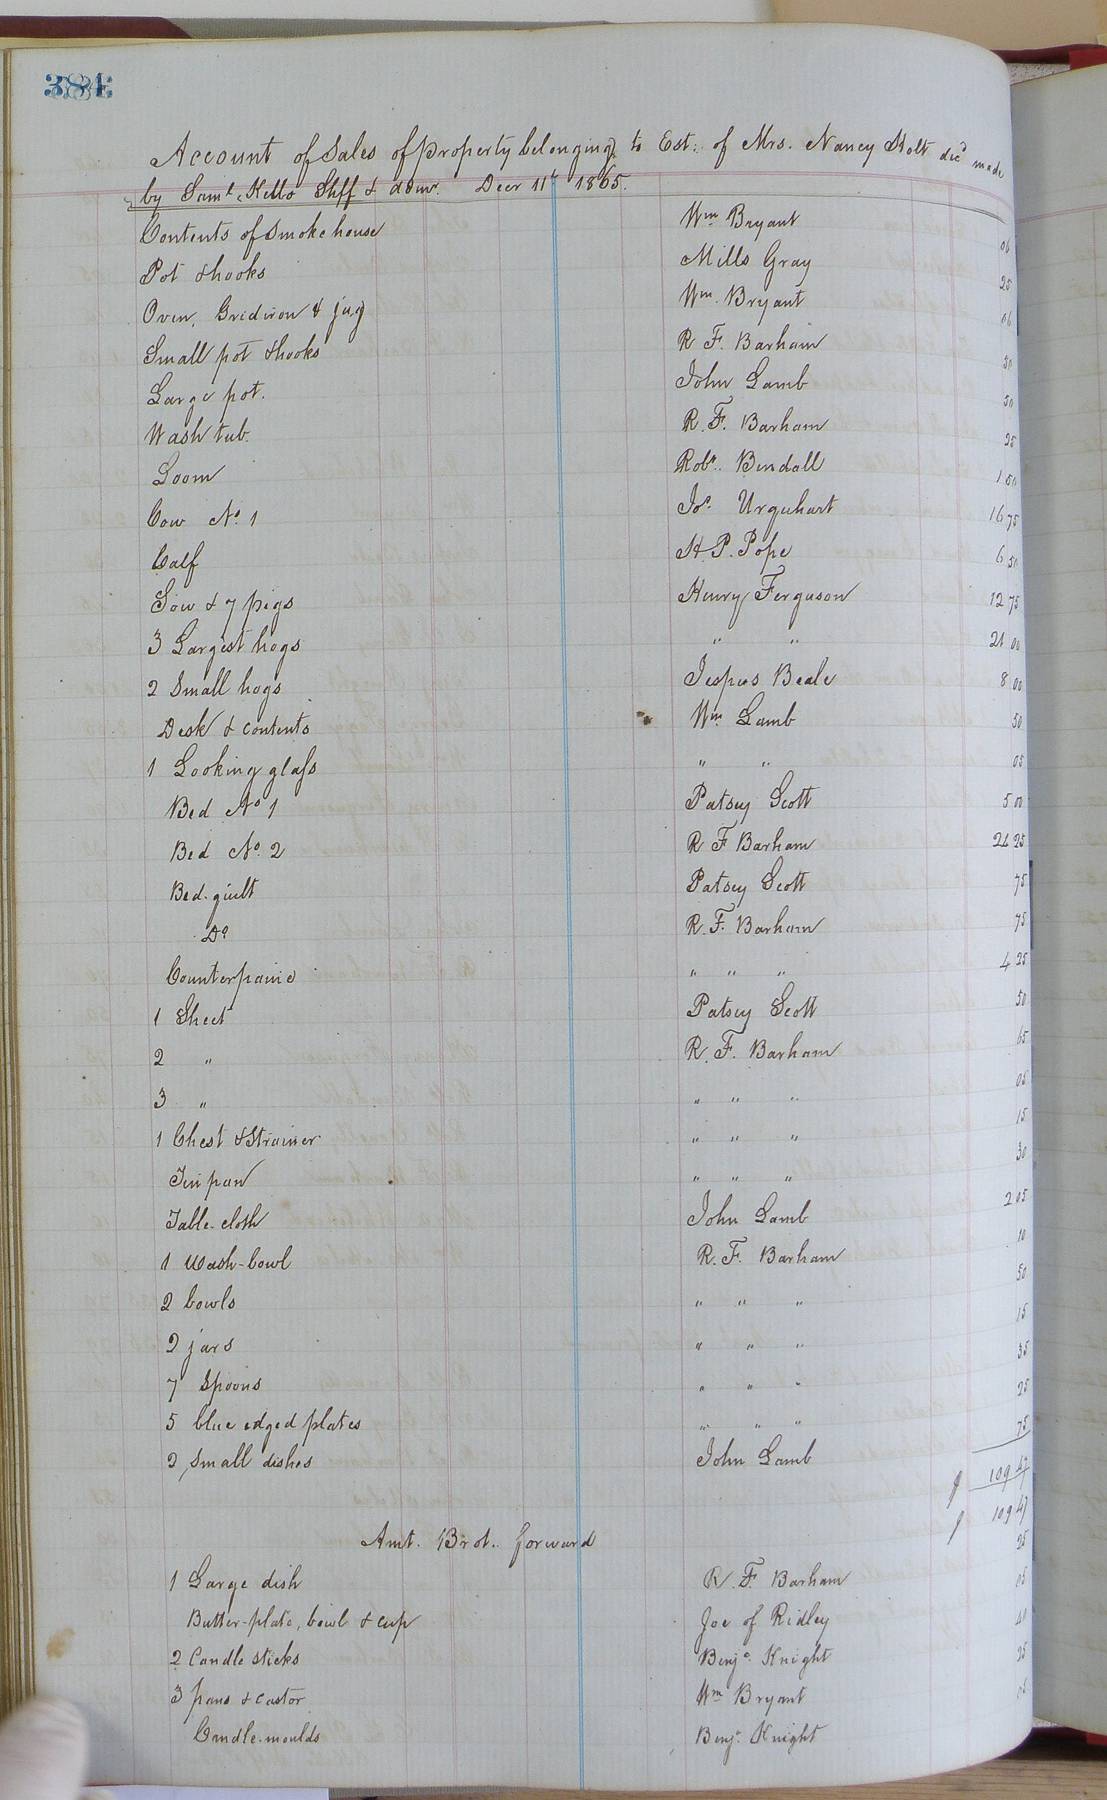 384
Account of Sales of property belonging to Est: of Mrs. Nancy Holt decd made
by Saml. Kello Shff & admr. Decr 11th 1865.
Contents of Smoke house Wm Bryant 06
Pot & hooks Mills Gray 25
Oven, Gridiron & jug Wm. Bryant 06
Small pot & hooks R F. Barham 50
Large pot. John Lamb 50
Wash tub. R. F. Barham 25
Loom Robt. Bendall 1 50
Cow No. 1 Jas. Urquhart 16 75
Calf H. P. Pope 6 50
Sow & 7 pigs Henry Ferguson 12 75
3 Largest hogs " " 21 00
2 Small hogs Jesper Beale 8 00
Desk & contents Wm Lamb 50
1 Looking glass " " 05
Bed No 1 Patsey Scott 5 00
Bed No. 2 R F Barham 24 25
Bed-quilt Patsey Scott 75
Do R. F. Barham 75
Counterpaine " " " 4 25
1 Sheet Patsey Scott 50
2 " R. F. Barham 65
3 " " " " 05
1 Chest & Strainer " " " 15
Tin pan " " " 30
Table-cloth John Lamb 2 05
1 Wash-bowl R. F. Barham 10
2 bowls " " " 50
2 jars " " " 15
7 Spoons " " " 35
5 blue edged plates " " " 25
2 Small dishes John Lamb 75
$ 109 47
Amt. Brot. forward $ 109 47
1 Large dish R. F. Barham 25
Butter-plate, bowl & cup Joe of Ridley 05
2 Candle sticks Benja. Knight 40
3 pans & castor Wm Bryant 25
Candle-moulds Benja. Knight 05